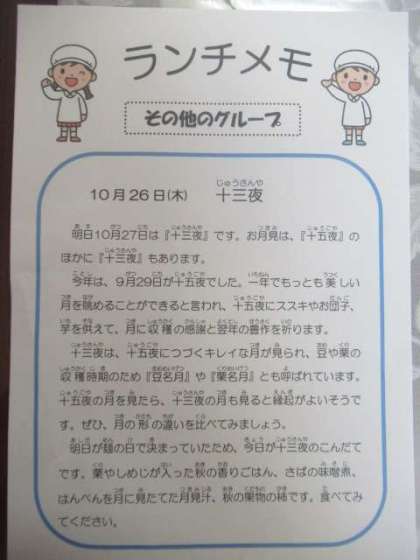 ランチメモ
その他のグループ
10月26日(木) 十三夜
明日10月27日は『十三夜』です。お月見は、『十五夜』の
ほかに『十三夜』もあります。
今年は、9月29日が十五夜でした。一年でもっとも美しい
月を眺めることができると言われ、十五夜にススキやお団子、
芋を供えて、月に収穫の感謝と翌年の豊作を祈ります。
十三夜は、十五夜につづくキレイな月が見られ、豆や栗の
収穫時期のため『豆名月』や『栗名月』とも呼ばれています。
十五夜の月を見たら、十三夜の月も見ると縁起がよいそうで
す。ぜひ、月の形の違いを比べてみましょう。
明日が麺の日で決まっていたため、今日が十三夜のこんだて
です。栗やしめじが入った秋の香りごはん、さばの味噌煮、
はんぺんを月に見たてた月見汁、秋の果物の柿です。食べてみ
てください。